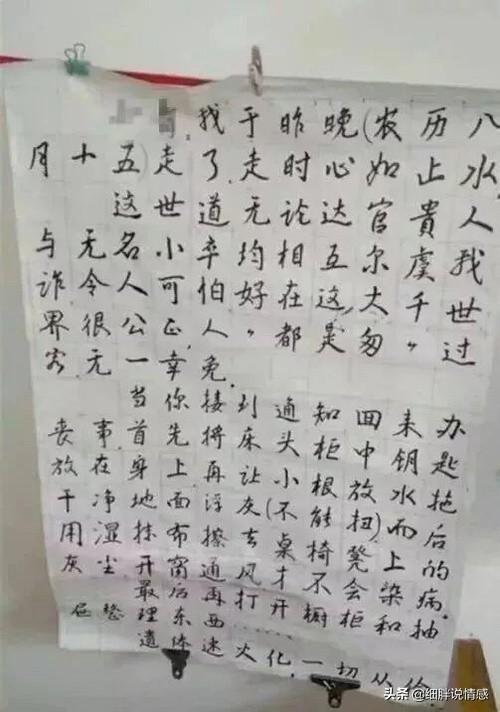 我于昨晚(农历八
月十五)走了,走时心如止水,
这世道无论达官貴人
与无名小卒均相互尔虞我
诈令人可怕好在这太千世
界很公正,“人都是匆匆过
客”无一幸免.
当你接到通知回来办
丧事首先将床头柜中钥匙
放在身上再让小根放水拖
干净地面浮灰(不能扭)而后
用湿抹布擦去桌椅凳上的
灰尘开窗通风才不会染病.
最后再打开橱柜和抽
屉整理东西……
遗体速火化,一切从俭
头条 @细胖说情感